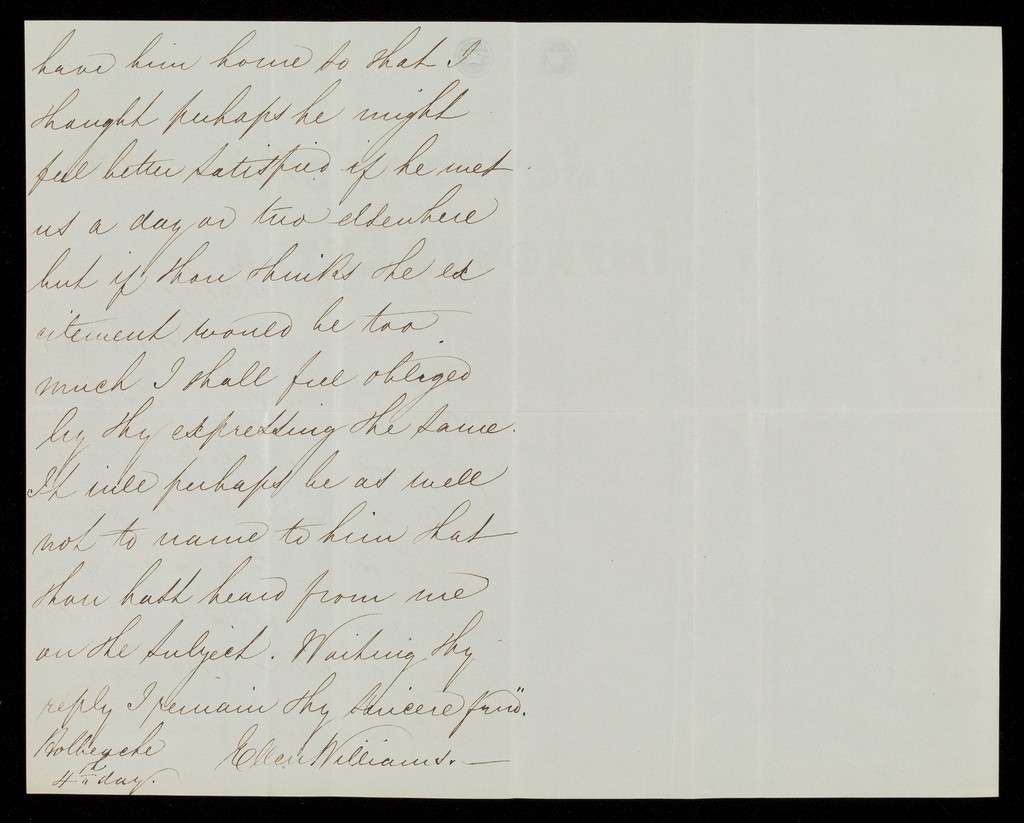 have him home so that I
thought perhaps he might
feel better satisfied if he met
us a day or two elsewhere
but if thou thinks the ex
citement would be too
much I shall feel obliged
by thy expressing the same.
It will perhaps be as well
not to name to him that
thou hast heard from me
on the subject. Waiting thy
reply I remain thy sincere frnd.
Ellen Williams. —
4th day.